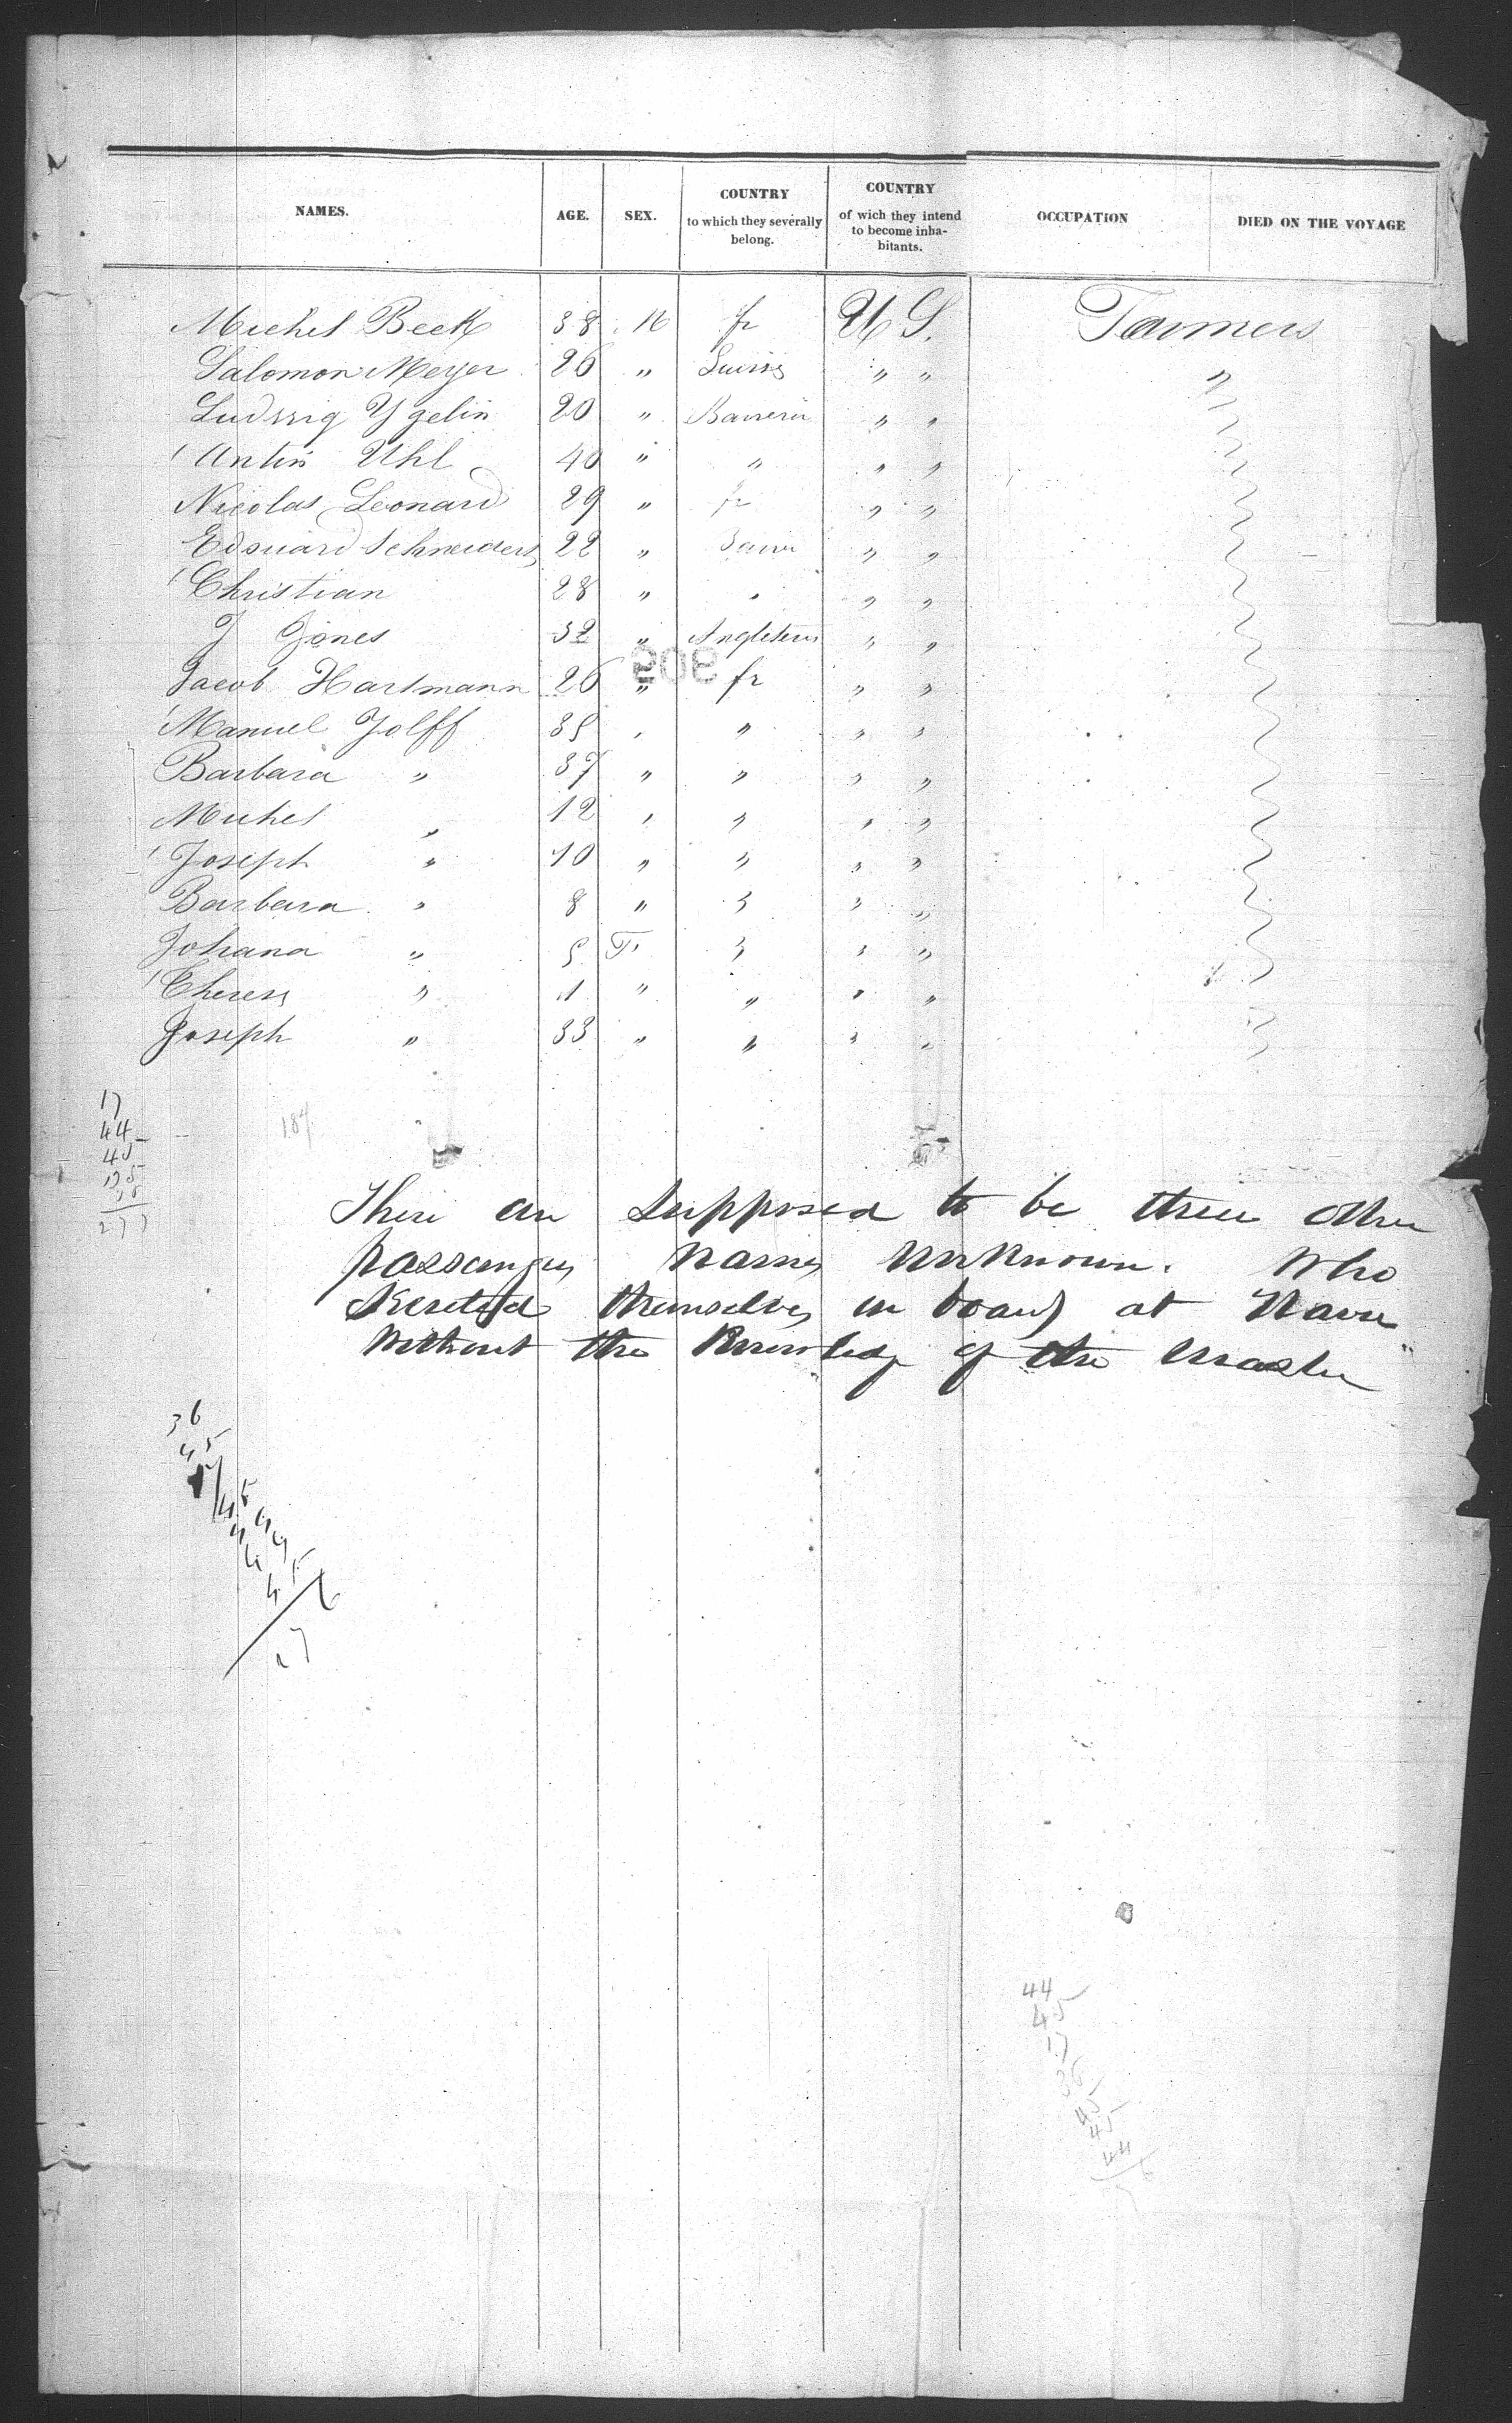 NAMES. AGE. SEX. COUNTRY to which they severally belong. COUNTRY of wich they intend to become inha-bitants. OCCUPATION DIED ON THE VOYAGE
Michel Beck 38 M fr U S. Farmers
Salomon Meyer 26 " Suisse " " "
Ludwig Ygelin 20 " Bavieria " "
Anton Uhl 40 " " " "
Nicolas Leonard 29 " fr " "
Edouard Schneiders 22 " Bavie " "
Christian 28 " " " "
J Jones 32 " Angleterre " "
Jacob Hartmann 26 " fr " "
Manuel Jolff 35 " " " "
Barbara " 37 " " " "
Michel " 12 " " " "
Joseph " 10 " " " "
Barbara " 8 " " " "
Johana " 5 F. " " "
Theress " 1 " " " "
Joseph " 33 " " " "
17
44
45
135
36
277
187
There are supposed to be three other
passengers names unknown. Who
secreted themselves on board at Havre
without the knowledge of the Master
36
45
44
45
17
36
45
45
44